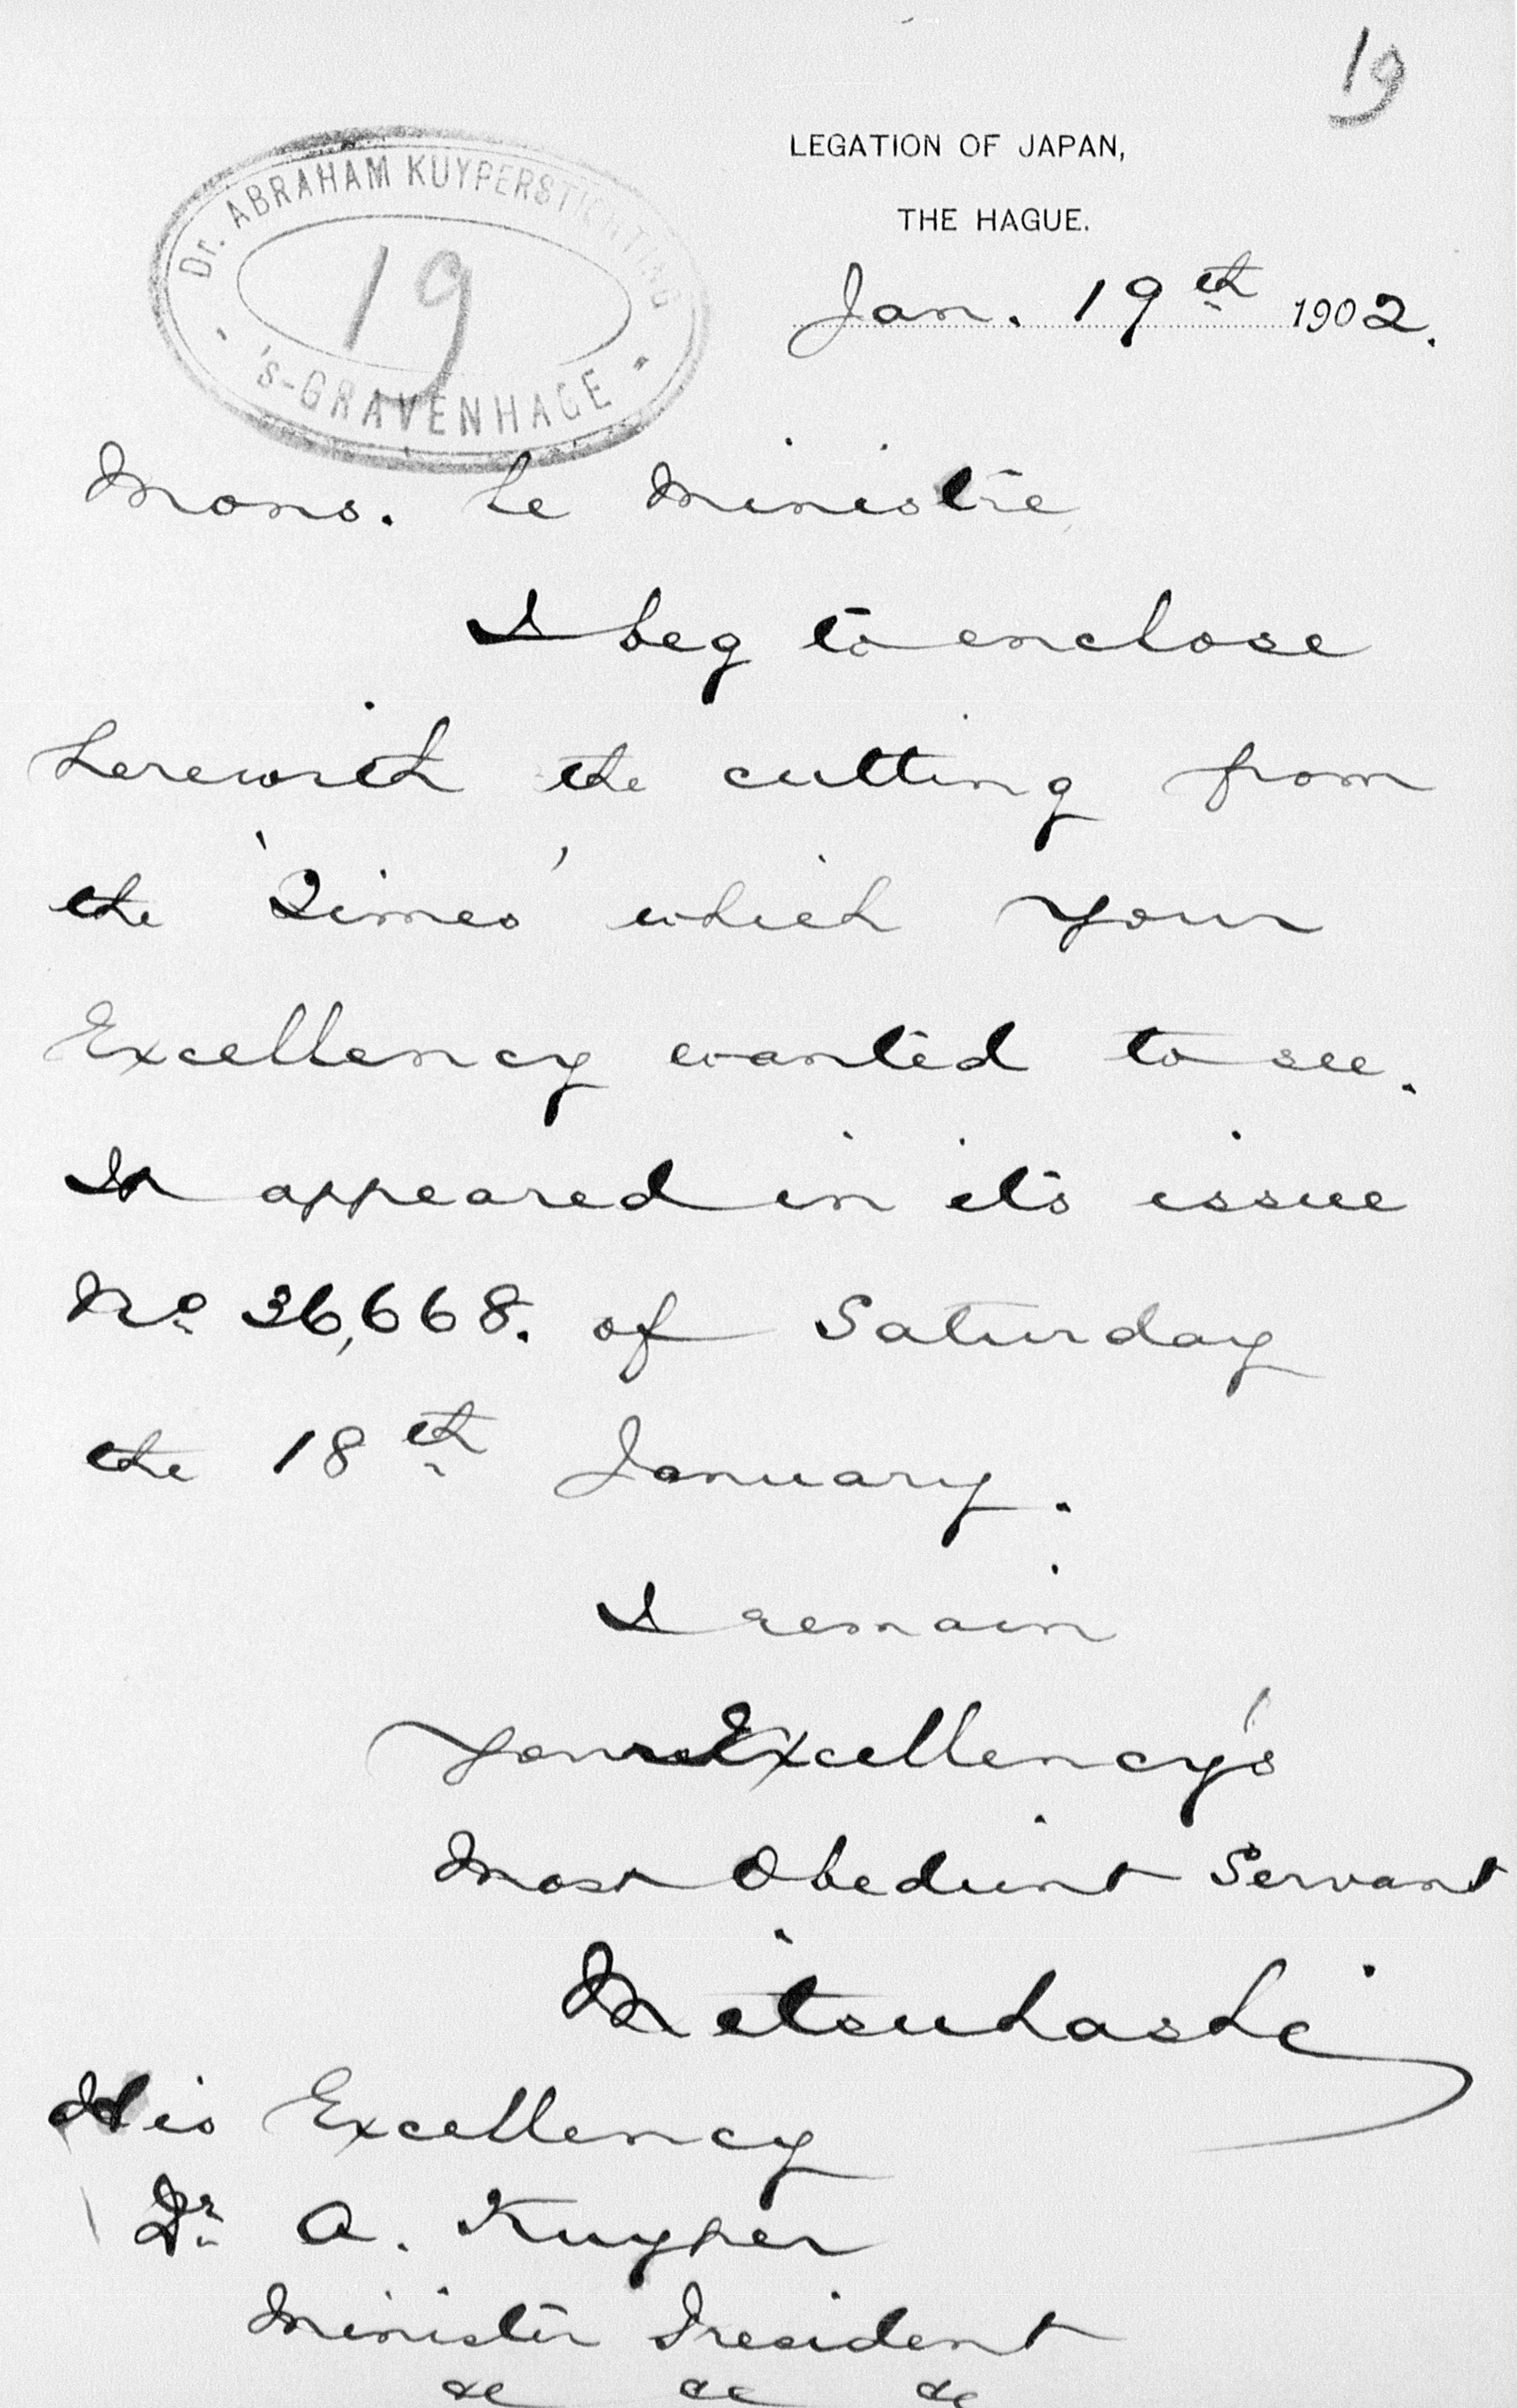 19
LEGATION OF JAPAN,
THE HAGUE.
Dr. ABRAHAM KUYPERSTICHTING
19
's-GRAVENHAGE
Jan. 19th 1902.
Mons. Le Ministre
I beg to enclose
herewith the cutting from
the 'Times' which Your
Excellency wanted to see.
It appeared in its issue
No 36,668. of Saturday
the 18th January.
I remain
Your Excellency's
Most Obedient Servant
Mitsuhashi
His Excellency
Dr A. Kuyper
Minister President
&c &c &c